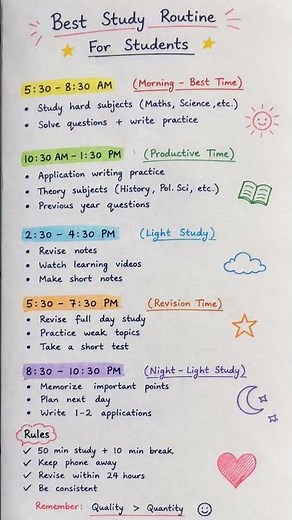 Best Study Routine
For Students
5:30 – 8:30 AM (Morning – Best Time)
• Study hard subjects (Maths, Science, etc.)
• Solve questions + write practice
10:30 AM – 1:30 PM (Productive Time)
• Application writing practice
• Theory subjects (History, Pol. Sci, etc.)
• Previous year questions
2:30 – 4:30 PM (Light Study)
• Revise notes
• Watch learning videos
• Make short notes
5:30 – 7:30 PM (Revision Time)
• Revise full day study
• Practice weak topics
• Take a short test
8:30 – 10:30 PM (Night – Light Study)
• Memorize important points
• Plan next day
• Write 1-2 applications
Rules
✓ 50 min study + 10 min break
✓ Keep phone away
✓ Revise within 24 hours
✓ Be consistent
Remember: Quality > Quantity ☺